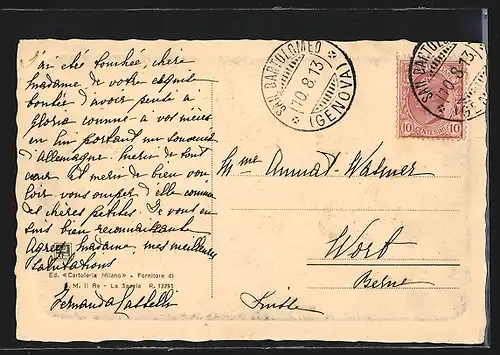 J'ai été touchée, chère
madame, de votre exquise
bonté d'avoir pensé à
Gloria comme à vos nièces
en lui portant un souvenir
d'Allemagne. Merci de tout
cœur et merci de bien vou
loir vous occuper d'elle comme
de chères petites. Je vous en
suis bien reconnaissante
Agréez madame, mes meilleures
Salutations
Fernanda Castelli
Ed. «Cartoleria Milano» - Fornitore di
S. M. il Re - La Spezia R. 13291
SAN BARTOLOMEO
10.8.13
(GENOVA)
SAN BARTOLOMEO
10.8.13
(GENOVA)
10 CENTESIMI 10
Mme Annat-Wasmer
Worb
Berne
Suisse